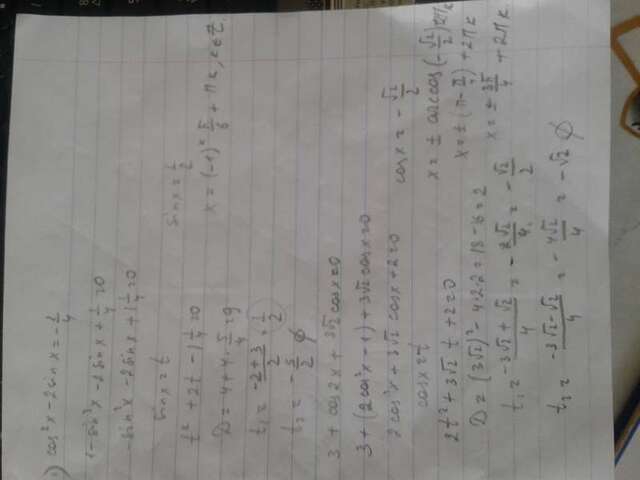 1) cos²x - 2sinx = -1/4
1 - sin²x - 2sinx + 1/4 = 0
-sin²x - 2sinx + 1 1/4 = 0
sinx = t
t² + 2t - 1 1/4 = 0
D = 4 + 4 · 5/4 = 9
t₁ = (-2 + 3)/2 = 1/2
t₂ = -5/2 ∅
sinx = 1/2
x = (-1)ᵏ π/6 + πk, k ∈ Z.
3 + cos2x + 3√2 cosx = 0
3 + (2cos²x - 1) + 3√2 cosx = 0
2cos²x + 3√2 cosx + 2 = 0
cosx = t
2t² + 3√2 t + 2 = 0
D = (3√2)² - 4·2·2 = 18 - 16 = 2
t₁ = (-3√2 + √2)/4 = -2√2/4 = -√2/2
t₂ = (-3√2 - √2)/4 = -4√2/4 = -√2 ∅
cosx = -√2/2
x = ± arccos(-√2/2) + 2πk
x = ± (π - π/4) + 2πk
x = ± 3π/4 + 2πk